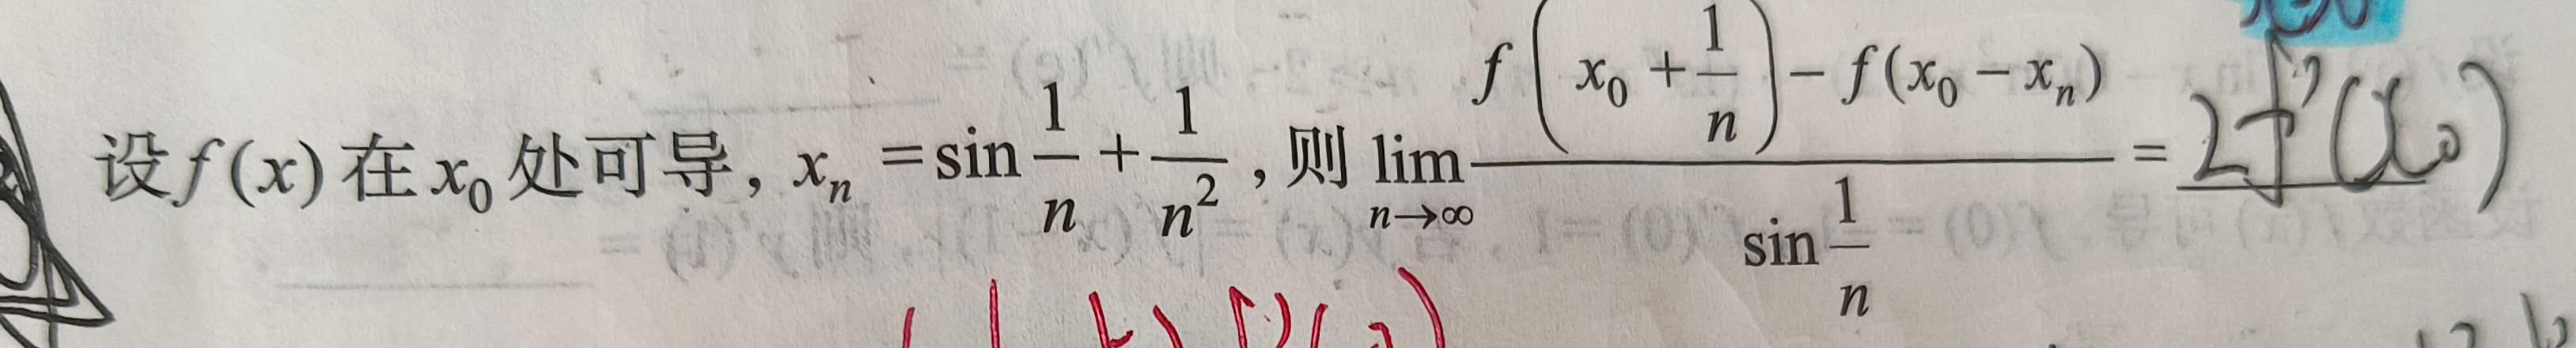 设f(x)在x₀处可导, xₙ = sin 1/n + 1/n², 则 lim_{n→∞} [f(x₀ + 1/n) − f(x₀ − xₙ)] / (sin 1/n) = 2f'(x₀)